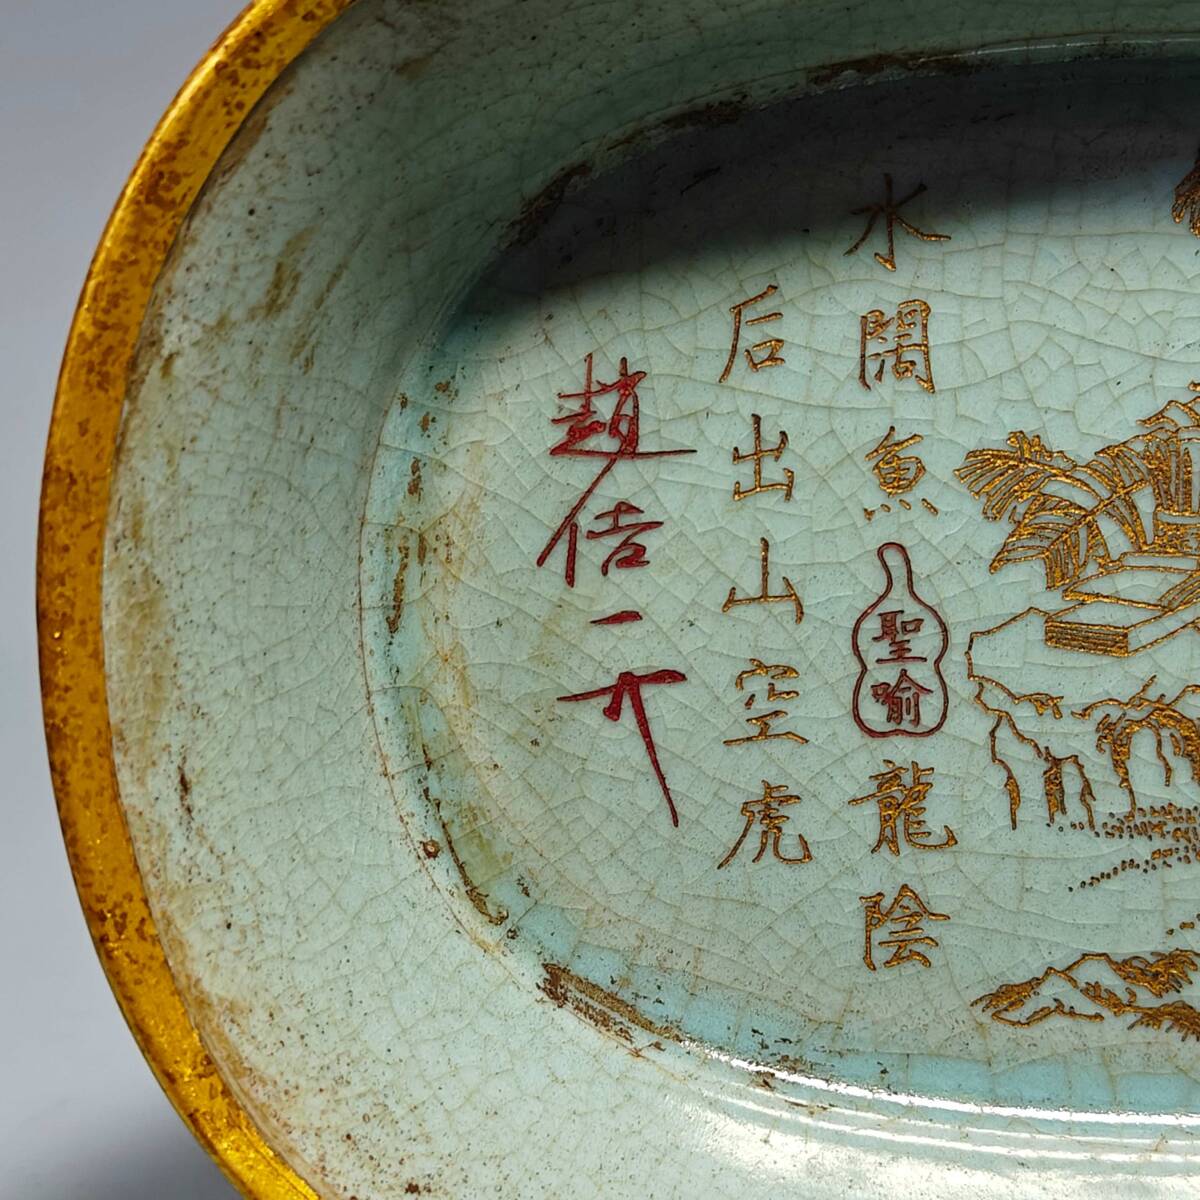 水闊魚龍陰
聖喻
后出山空虎
趙佶